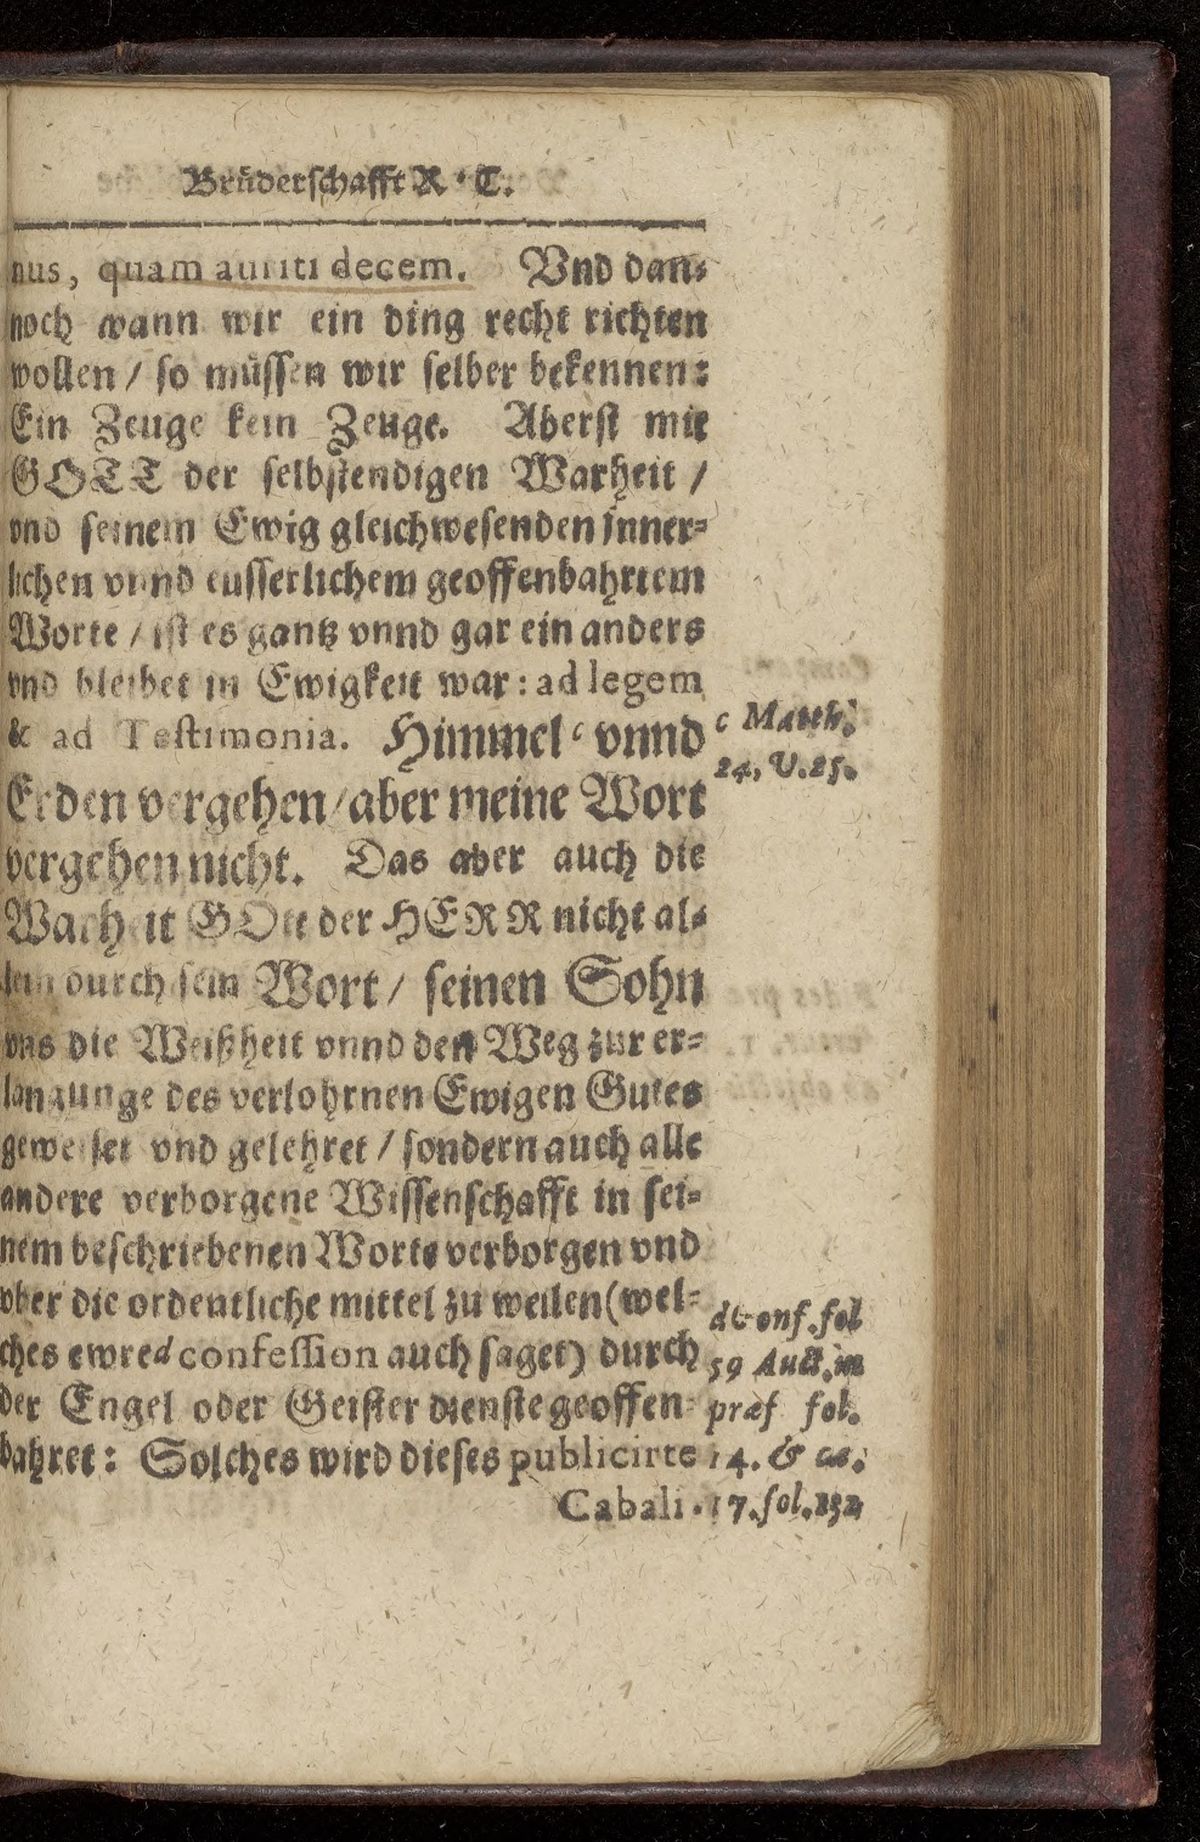 Brüderschafft R. C.
nus, quam auriti decem. Vnd dan-
noch wann wir ein ding recht richten
wollen / so müssen wir selber bekennen:
Ein Zeuge kein Zeuge. Aberst mit
GOTT der selbstendigen Warheit /
vnd seinem Ewig gleichwesenden inner-
lichen vnnd eusserlichem geoffenbahrtem
Worte / ist es gantz vnnd gar ein anders
vnd bleibet in Ewigkeit war: ad legem
& ad Testimonia. Himmel c vnnd
c Matth.
24, V. 25.
Erden vergehen / aber meine Wort
vergehen nicht. Das aber auch die
Warheit GOtt der HERR nicht al-
lein durch sein Wort / seinen Sohn
vns die Weißheit vnnd den Weg zur er-
langunge des verlohrnen Ewigen Gutes
geweiset vnd gelehret / sondern auch alle
andere verborgene Wissenschafft in sei-
nem beschriebenen Worte verborgen vnd
vber die ordentliche mittel zu weilen (wel-
ches ewre d confession auch saget) durch
der Engel oder Geister dienste geoffen-
bahret: Solches wird dieses publicirte
Cabali.
d Conf. fol
59 Auct. in
præf fol.
14. & ca.
17. fol. 132